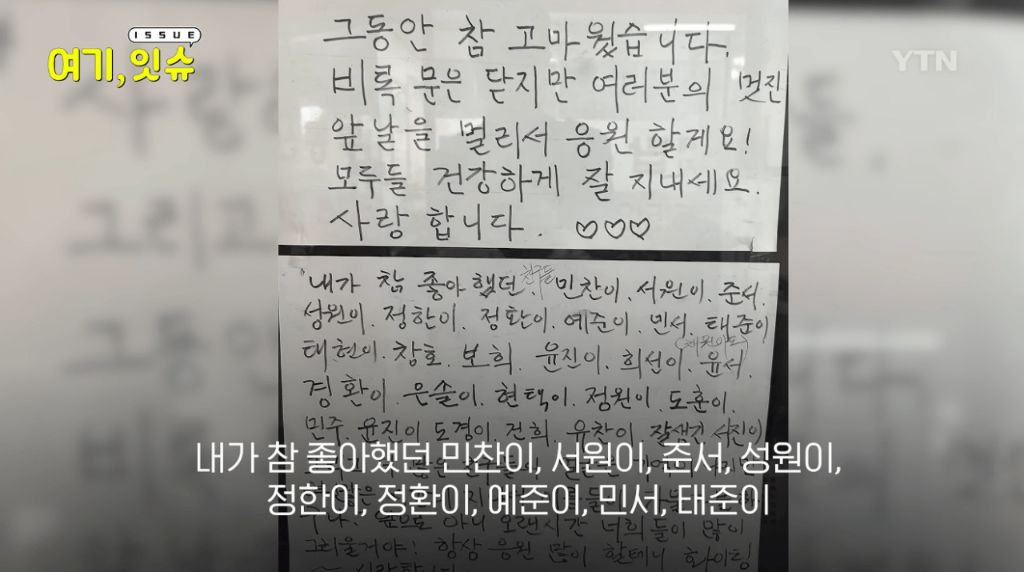 ISSUE
여기, 잇슈
YTN
그동안 참 고마웠습니다.
비록 문은 닫지만 여러분의 멋진
앞날을 멀리서 응원 할게요!
모두들 건강하게 잘 지내세요.
사랑 합니다. ♡♡♡
내가 참 좋아했던 친구들 민찬이. 서원이. 준서.
성원이. 정한이. 정환이. 예준이. 민서. 태준이
태현이. 창호. 보희. 윤진이. 희선이. 윤서.
경환이. 은솔이. 현택이. 정원이. 도훈이.
민주. 윤진이 도경이. 건희. 유찬이. 잘생긴 서진이
내가 참 좋아했던 민찬이, 서원이, 준서, 성원이,
정한이, 정환이, 예준이, 민서, 태준이
오랜시간 너희들이 많이
그리울거야! 항상 응원 많이 할테니 화이팅